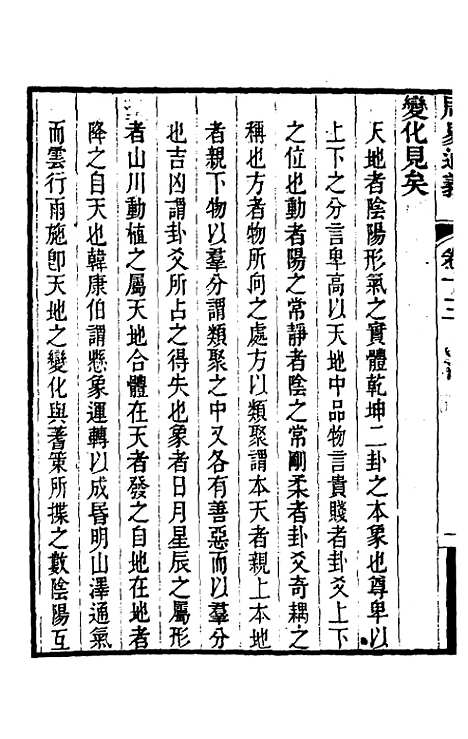 周易通義
卷十三
變化見矣
天地者陰陽形氣之實體乾坤二卦之本象也尊卑以
上下之分言卑高以天地中品物言貴賤者卦爻上下
之位也動者陽之常靜者陰之常剛柔者卦爻奇耦之
稱也方者物所向之處方以類聚謂本天者親上本地
者親下物以羣分謂類聚之中又各有善惡而以羣分
也吉凶謂卦爻所占之得失也象者日月星辰之屬形
者山川動植之屬天地合體在天者發之自地在地者
降之自天也韓康伯謂懸象運轉以成昏明山澤通氣
而雲行雨施卽天地之變化與蓍策所揲之數陰陽互